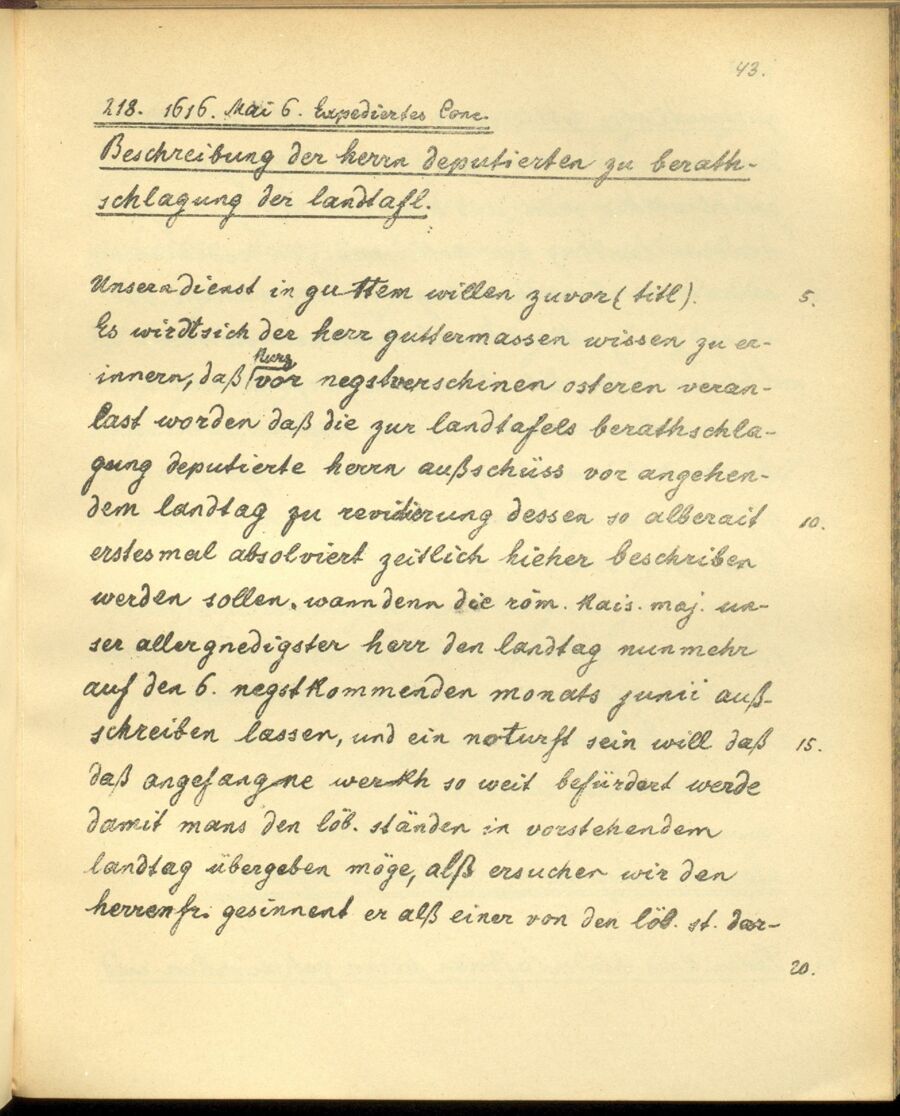 43.
218. 1616. Mai 6. Expediertes Conc.
Beschreibung der herrn deputierten zu berath-
schlagung der landtafl.
Unsern dienst in guttem willen zuvor (titl).
5.
Es wirdt sich der herr guttermassen wissen zu er-
kurz
innern, daß vor negstverschinen osteren veran-
last worden daß die zur landtafels berathschla-
gung deputierte herrn außschüss vor angehen-
dem landtag zu revidierung dessen so alberait
10.
erstesmal absolviert zeitlich hieher beschriben
werden sollen. wann denn die röm. kais. maj. un-
ser allergnedigster herr den landtag nunmehr
auf den 6. negstkommenden monats junii auß-
schreiben lassen, und ein noturft sein will daß
15.
daß angefangne werkh so weit befürdert werde
damit mans den löb. ständen in vorstehendem
landtag übergeben möge, alß ersuchen wir den
herren fr. gesinnent er alß einer von den löb. st. dar-
20.